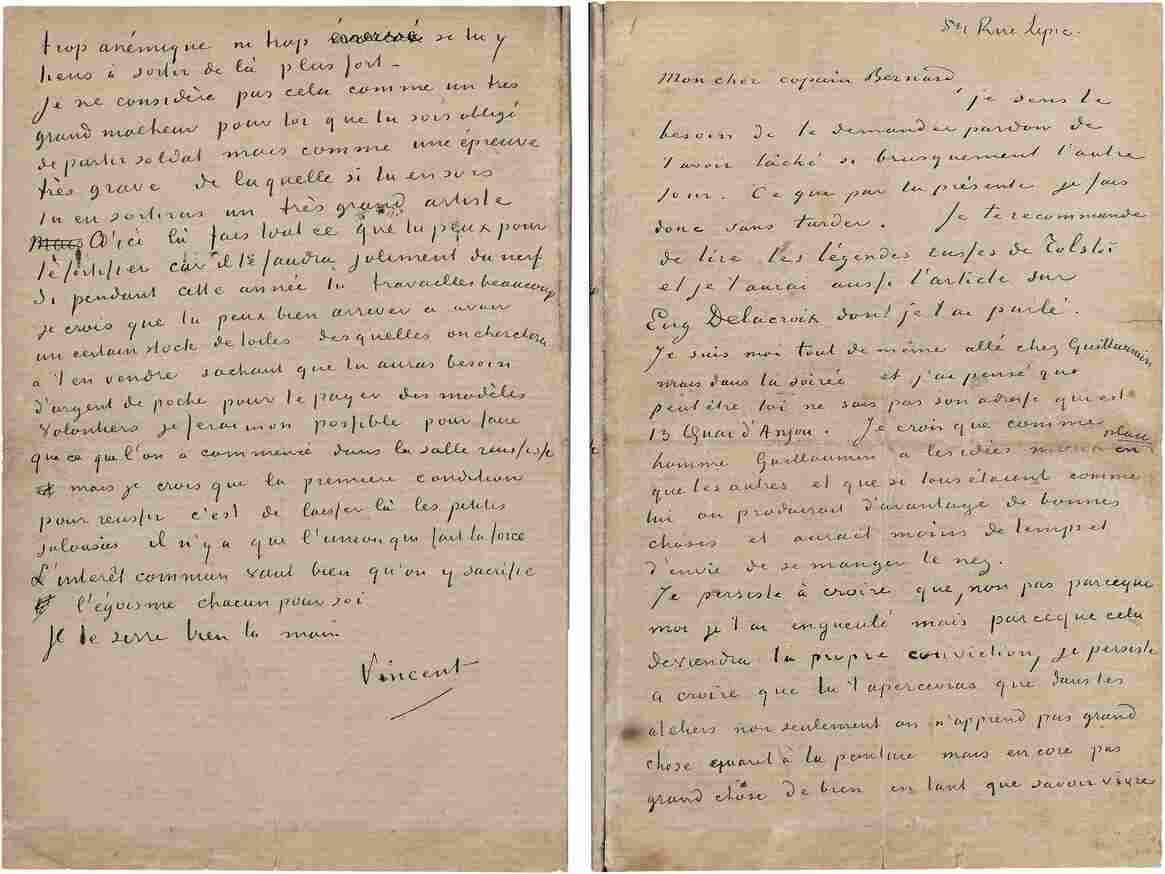 trop anémique ni trop énervé si tu y
tiens à sortir de là plus fort –
Je ne considère pas cela comme un très
grand malheur pour toi que tu sois obligé
de partir soldat mais comme une épreuve
très grave de laquelle si tu en sors
tu en sortiras un très grand artiste
Mais D'ici là fais tout ce que tu peux pour
te fortifier car il te faudra joliment du nerf
Si pendant cette année tu travailles beaucoup
je crois que tu peux bien arriver à avoir
un certain stock de toiles desquelles on cherchera
à t'en vendre sachant que tu auras besoin
d'argent de poche pour te payer des modèles
Volontiers je ferai mon possible pour faire
que ce que l'on a commencé dans la salle reussisse
mais je crois que la première condition
pour reussir c'est de laisser là les petites
jalousies il n'y a que l'union qui fait la force
L'interêt commun vaut bien qu'on y sacrifie
l'égoïsme chacun pour soi
Je te serre bien la main
Vincent
54 Rue Lepic.
Mon cher copain Bernard
je sens le
besoin de te demander pardon de
t'avoir lâché si brusquement l'autre
jour. Ce que par la présente je fais
donc sans tarder. Je te recommande
de lire les légendes russes de Tolstoï
et je t'aurai aussi l'article sur
Eug Delacroix dont je t'ai parlé.
Je suis moi tout de même allé chez Guillaumin
mais dans la soirée et j'ai pensé que
peut être toi ne sais pas son adresse qui est
13 Quai d'Anjou. Je crois que comme
homme Guillaumin a les idées mieux en place
que les autres et que si tous étaient comme
lui on produirait d'avantage de bonnes
choses et aurait moins de temps et
d'envie de se manger le nez.
Je persiste à croire que, non pas parceque
moi je t'ai engueulé mais parceque cela
deviendra ta propre conviction, je persiste
à croire que tu t'apercevras que dans les
ateliers non seulement on n'apprend pas grand
chose quant à la peinture mais encore pas
grand chose de bien en tant que savoir vivre